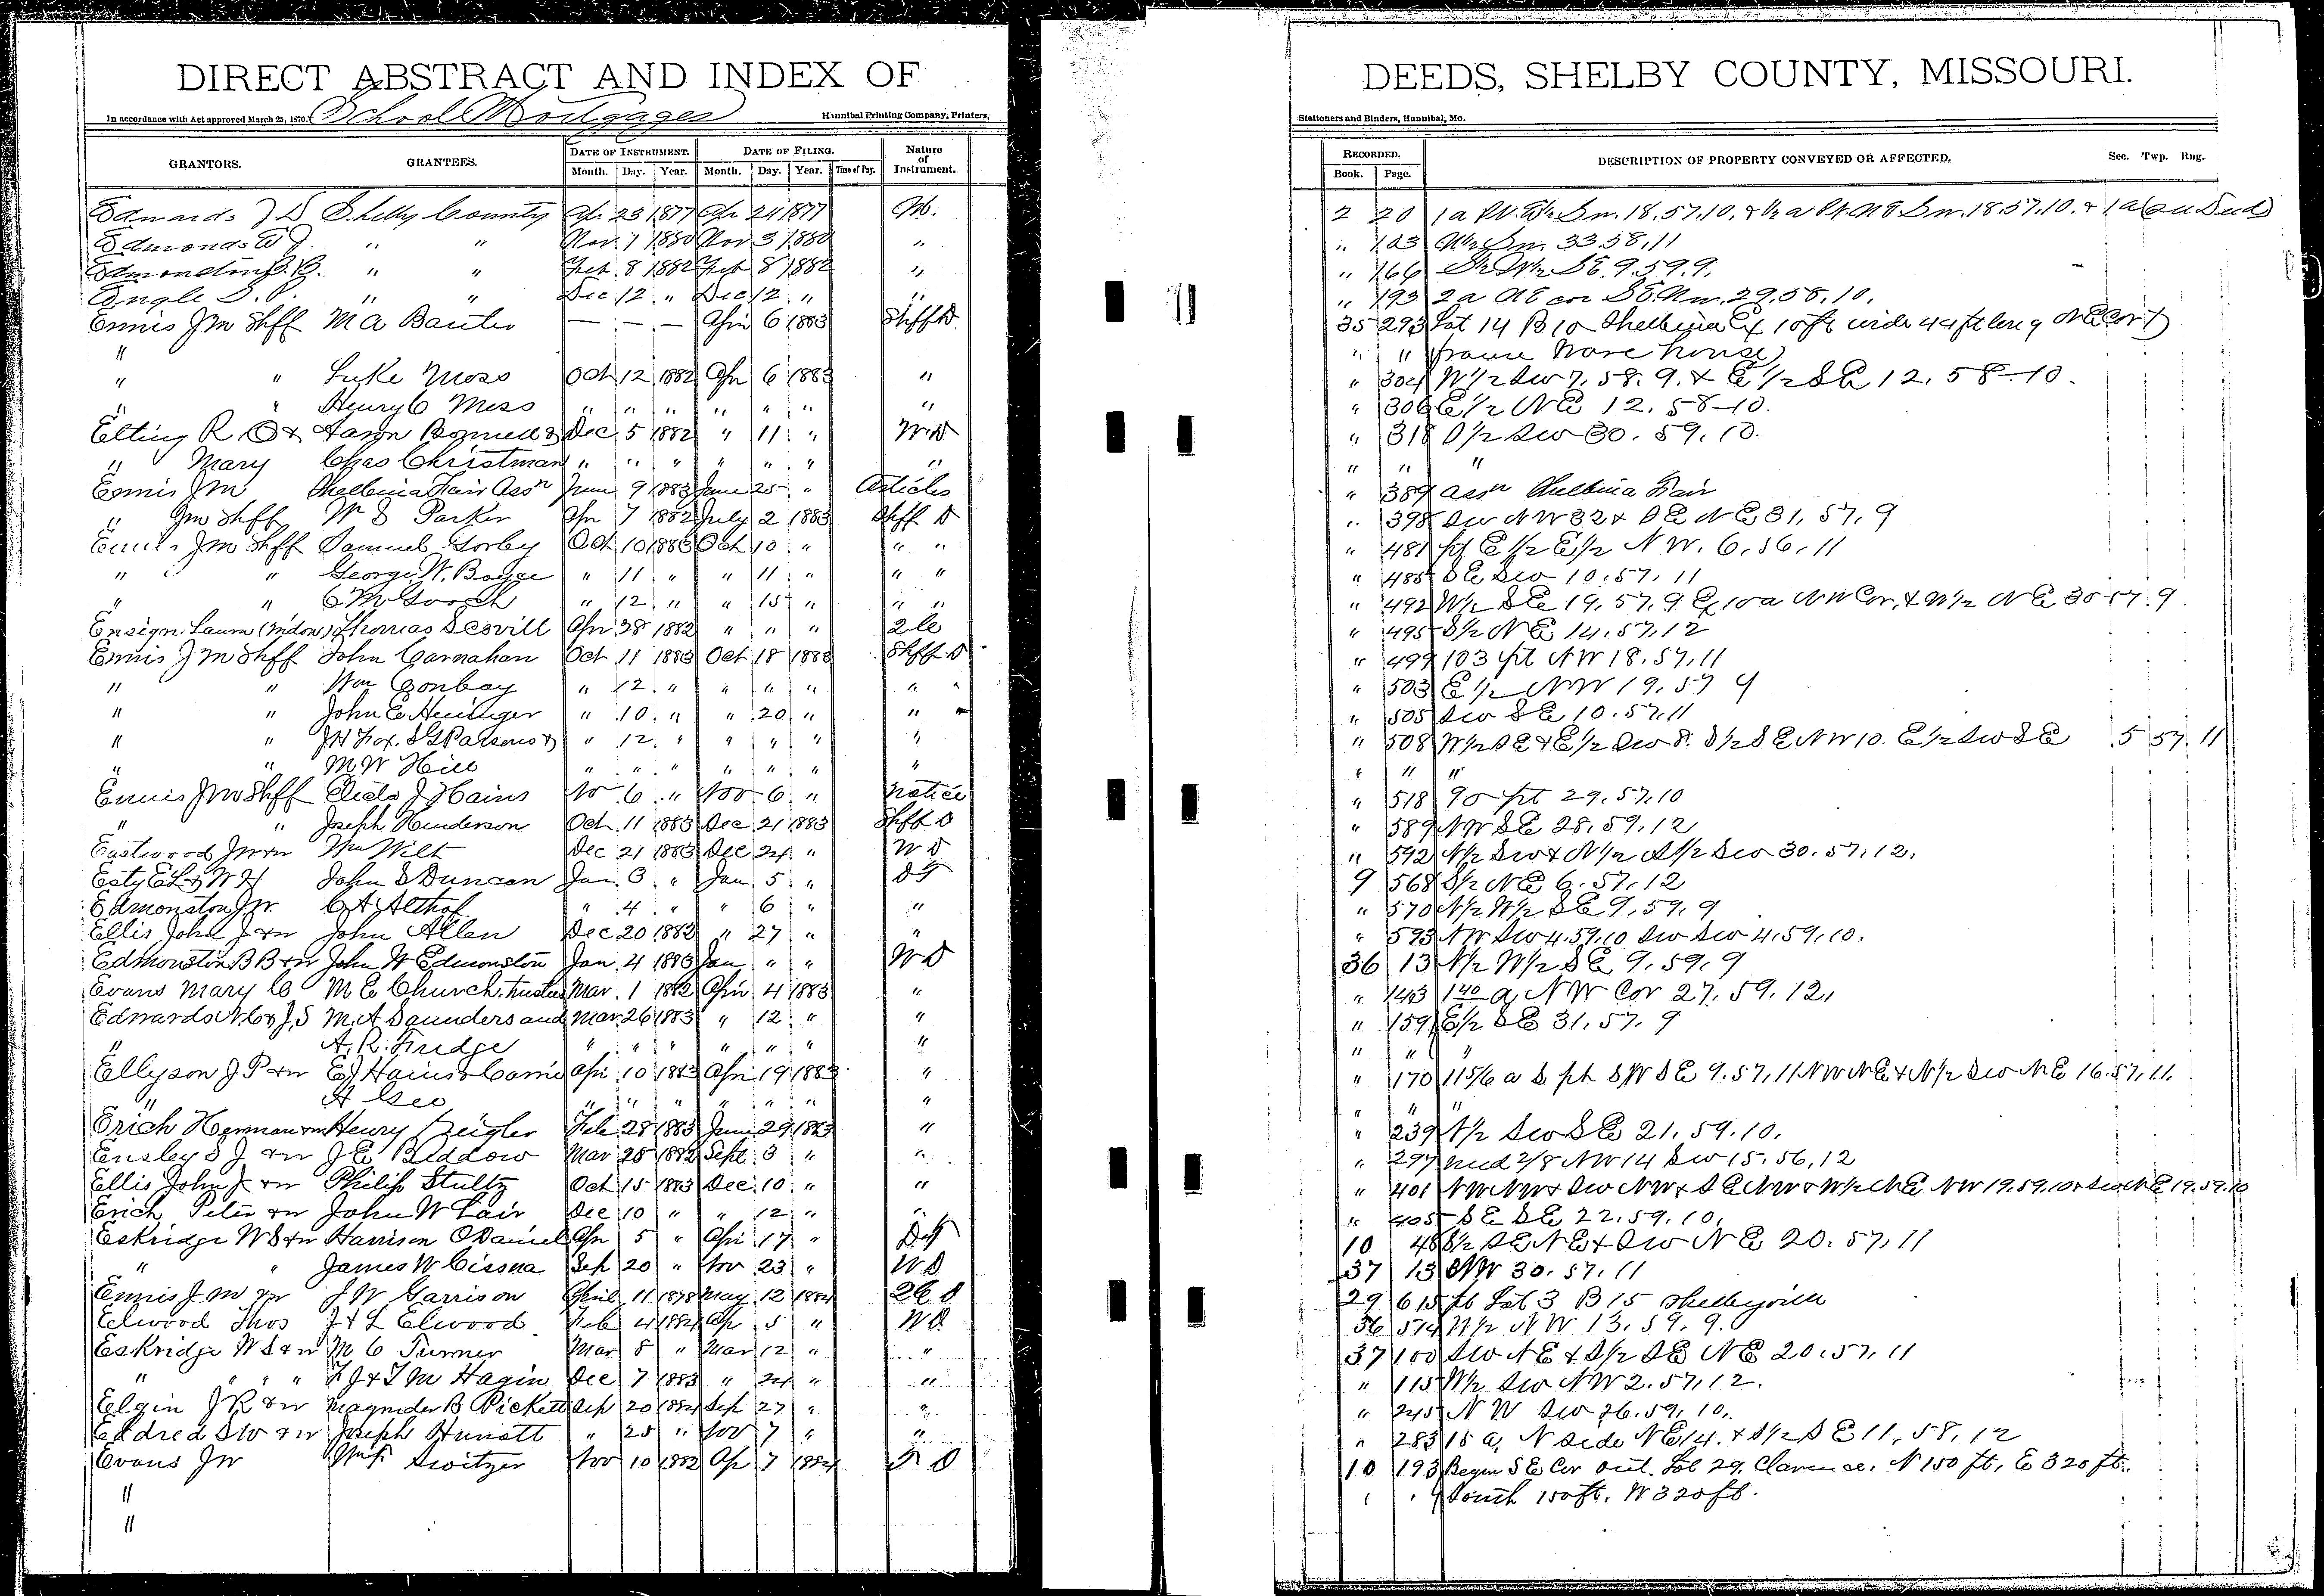 DIRECT ABSTRACT AND INDEX OF
School Mortgages
In accordance with Act approved March 25, 1870.
Hannibal Printing Company, Printers,
GRANTORS. GRANTEES. DATE OF INSTRUMENT. DATE OF FILING. Nature of Instrument.
Month. Day. Year. Month. Day. Year. Time of Pay.
Edwards J D Shelby County Apr 23 1877 Apr 24 1877 M.
Edmonds W J. " " Nov. 1 1880 Nov 3 1880 "
Edmonston B.B. " " Feb. 8 1882 Feb 8 1882 "
Engle S. P. " " Dec 12 " Dec 12 " "
Ennis J M Shff M A Baxter — — — Apr 6 1883 Shff D
"
" " Luke Moss Oct 12 1882 Apr 6 1883 "
" " Henry C Moss " " " " " " "
Elting R O & Aaron Bonnell & Dec 5 1882 " 11 " W.D
" Mary Chas Christman " " " " " " "
Ennis J M Shelbina Fair Assn June 9 1883 June 25 " Articles
" J M Shff Wm S Parker Apr 7 1882 July 2 1883 Shff D
Ennis J M Shff Samuel Gorby Oct 10 1883 Oct 10 " " "
" " George W. Boyce " 11 " " 11 " " "
" " C M Gooch " 12 " " 15 " " "
Ensign Laura (Widow) Thomas Scovill Apr 28 1882 " " " 2 C
Ennis J M Shff John Carnahan Oct 11 1883 Oct 18 1883 Shff D
" " Wm Conboy " 12 " " " " " "
" " John E Heninger " 10 " " 20 " "
" " J H Fox. S G Parsons & " 12 " " " " "
" " M W Hill " " " " " "
Ennis J M Shff J Hains No 6 " Nov 6 " Notice
" " Joseph Henderson Oct 11 1883 Dec 21 1883 Shff D
Eastwood J W & w Wm Wilt Dec 21 1883 Dec 24 " W D
Esty E L & W H John S Duncan Jan 3 " Jan 5 " D T
Edmonston J W. C A Althof " 4 " " 6 " "
Ellis John J & w John Allen Dec 20 1883 " 27 " "
Edmonston B B & w John W Edmonston Jan 4 1883 Jan " " W D
Evans Mary C M E Church. trustees Mar 1 1882 Apr 4 1883 "
Edwards N.C & J.S M. A Saunders and Mar 26 1883 " 12 " "
" A. R. Fudge " " " " " " "
Ellyson J P & w E J Hains & Carrie Apr 10 1883 Apr 19 1883 "
" A Geo " " " " " " "
Erich Herman & w Henry Zeigler Feb 28 1883 June 29 1883 "
Ensley S J & w J E Beddow Mar 28 1882 Sept 3 " "
Ellis John J & w Philip Stultz Oct 15 1883 Dec 10 " "
Erich Peter & w John W Lair Dec 10 " " 12 " "
Eskridge W S & w Harrison O Daniel Apr 5 " Apr 17 " D T
" " James W Cissna Sep 20 " Nov 23 " W D
Ennis J M & w J W Garrison April 11 1878 May 12 1884 2 C D
Elwood Thos J & L Elwood Feb 4 1884 Ap 5 " W D
Eskridge W S & w M C Turner Mar 8 " Mar 12 " "
" " " J & T M Hagin Dec 7 1883 " 24 " "
Elgin J R & w Magruder B Pickett Sep 20 1884 Sep 27 " "
Eldred S W & w Joseph Hunott " 25 " Nov 7 " "
Evans J W Switzer Nov 10 1882 Ap 7 1884 T D
"
"
DEEDS, SHELBY COUNTY, MISSOURI.
Stationers and Binders, Hannibal, Mo.
RECORDED. DESCRIPTION OF PROPERTY CONVEYED OR AFFECTED. Sec. Twp. Rng.
Book. Page.
2 20 1 a 18.57.10. & 18.57.10. & 1 a
" 103 33.58.11
" 166 SE. 9.59.9.
" 193 2 a NE cor SE. NW. 29.58.10.
35 293 Lot 14 B 10 Shelbina Ex 10 ft wide 44 ft long NE Cor
" " frame Ware house)
" 304 W 1/2 SW 7. 58. 9. & E 1/2 SE 12. 58-10.
" 306 E 1/2 NE 12. 58-10.
" 318 S 1/2 SW 30. 59. 10.
" " "
" 389 Assn Shelbina Fair
" 398 SW NW 32 & SE NE 31, 57, 9
" 481 pt E 1/2 E 1/2 NW. 6, 56, 11
" 485 SE SW 10. 57. 11
" 492 W 1/2 SE 19, 57, 9 Ex 10 a NW Cor, & W 1/2 NE 30 57. 9.
" 495 S 1/2 NE 14. 57. 12
" 499 103 pt NW 18. 57. 11
" 503 E 1/2 NW 19. 57 9
" 505 SW SE 10. 57. 11
" 508 W 1/2 SE & E 1/2 SW 8. S 1/2 SE NW 10. E 1/2 SW SE 5 57 11
" " "
" 518 90 pt 29. 57. 10
" 589 NW SE 28. 59. 12
" 592 N 1/2 SW & N 1/2 S 1/2 SW 30. 57. 12.
9 568 S 1/2 NE 6. 57. 12
" 570 N 1/2 W 1/2 SE 9. 59. 9
" 593 NW SW 4. 59. 10 SW SW 4. 59. 10.
36 13 N 1/2 W 1/2 SE 9. 59. 9
" 143 1 40 a, NW Cor 27. 59. 12,
" 159 E 1/2 SE 31. 57. 9
" " "
" 170 115/6 a S pt SW SE 9. 57. 11 NW NE & N 1/2 SW NE 16. 57. 11.
" " "
" 239 N 1/2 SW SE 21. 59. 10.
" 297 und 2/8 NW 14 SW 15. 56, 12
" 401 NW NW & SW NW & SE NW & W 1/2 NE NW 19. 59. 10 & SW NE 19. 59. 10
" 405 SE SE 22. 59. 10,
10 48 S 1/2 SE NE & SW NE 20. 57, 11
37 13 NW 30. 57. 11
29 615 pt Lot 3 B 15 Shelbyville
36 514 W 1/2 NW 13. 59. 9.
37 100 SW NE & S 1/2 SE NE 20. 57. 11
" 115 W 1/2 SW NW 2. 57, 12.
" 245 NW SW 26. 59, 10.
" 283 15 a, N side NE 14. & S 1/2 SE 11, 58, 12
10 193 Begin SE Cor out. Lot 29. Clarence. N 150 ft, E 320 ft.
" " South 150 ft. W 320 ft.